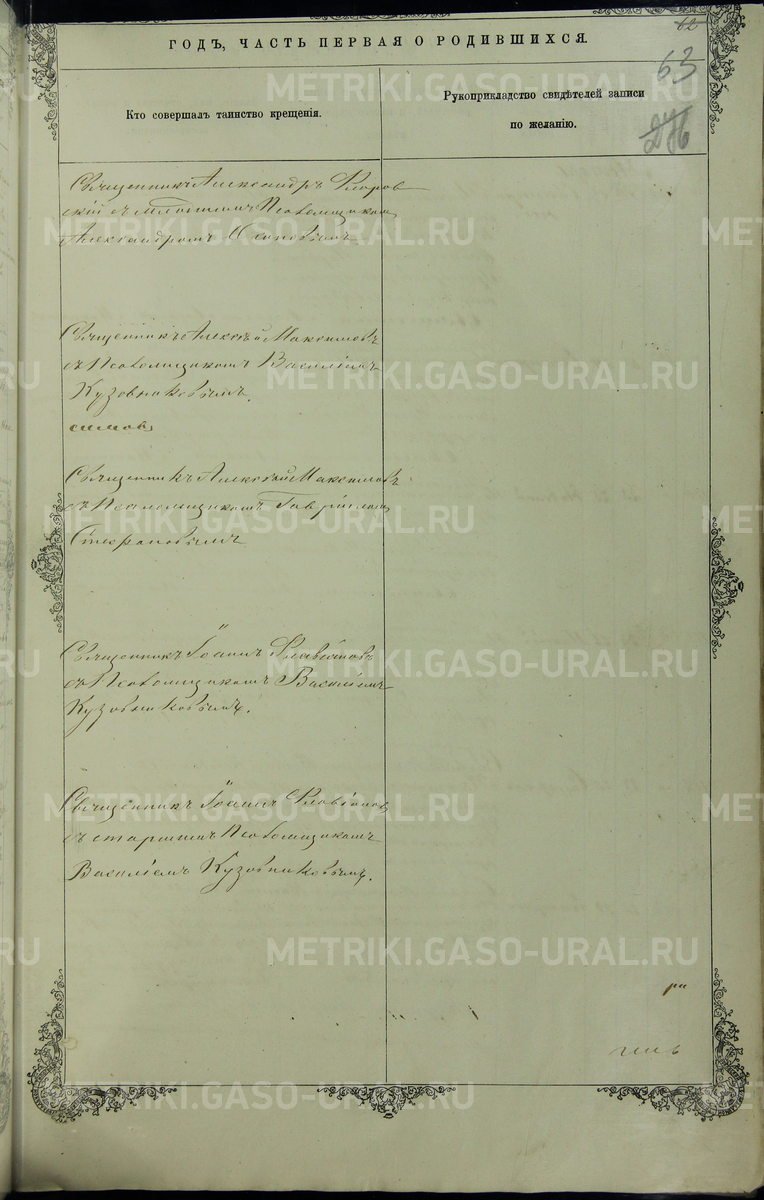 62
ГОДЪ, ЧАСТЬ ПЕРВАЯ О РОДИВШИХСЯ.
63
Кто совершалъ таинство крещенія.
Рукоприкладство свидѣтелей записи
по желанію.
Священникъ Александръ Флоров
скій съ младшимъ Псаломщикомъ
Александромъ Осиповымъ
Священникъ Алексѣй Максимовъ
съ Псаломщикомъ Василіемъ
Кузовниковымъ.
Священникъ Алексѣй Максимовъ
съ Псаломщикомъ Гавріиломъ
Стефановымъ
Священникъ Іоаннъ Флавіановъ
съ Псаломщикомъ Василіемъ
Кузовниковымъ.
Священникъ Іоаннъ Флавіановъ
съ старшимъ Псаломщикомъ
Василіемъ Кузовниковымъ.
METRIKI.GASO-URAL.RU